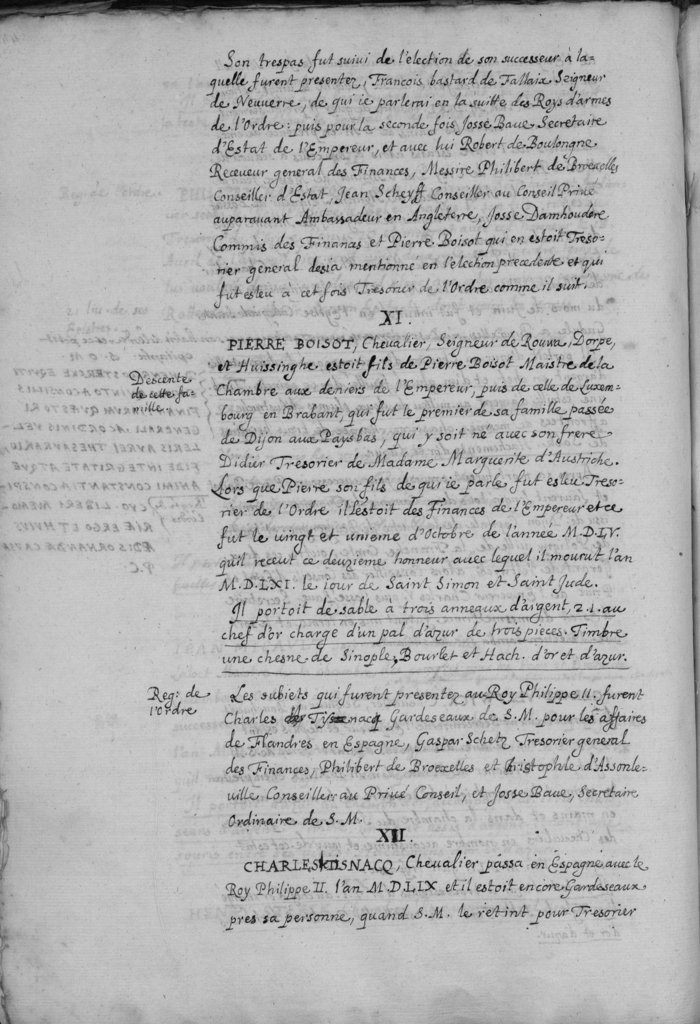 Son trespas fut suivi de l'election de son successeur à la-
quelle furent presentez, Francois bastard de Fallaix Seigneur
de Neuuerre, de qui ie parlerai en la suitte des Roys d'armes
de l'Ordre: puis pour la seconde fois Josse Baue Secretaire
d'Estat de l'Empereur, et avec lui Robert de Boulongne
Receueur general des Finances, Messire Philibert de Broexelles
Conseiller d'Estat, Jean Scheyff Conseiller au Conseil Privé
auparauant Ambassadeur en Angleterre, Josse Damhoudere
Commis des Finances et Pierre Boisot qui en estoit Treso-
rier general desia mentionné en l'election precedente et qui
fut esleu à cet fois Tresorier de l'Ordre comme il suit.
XI.
PIERRE BOISOT, Chevalier, Seigneur de Rouwa, Dorpe,
et Huissinghe estoit fils de Pierre Boisot Maistre de la
Descente
de cette fa-
mille
Chambre aux deniers de l'Empereur, puis de celle de Luxem-
bourg en Brabant, qui fut le premier de sa famille passée
de Dijon aux Paysbas, qui y soit né avec son frere
Didier Tresorier de Madame Marguerite d'Austriche.
Lors que Pierre son fils de qui ie parle fut esleu Treso-
rier de l'Ordre il l'estoit des Finances de l'Empereur et ce
fut le vingt et unieme d'Octobre de l'année M.D.LV.
qu'il receut ce deuzieme honneur avec lequel il mourut l'an
M.D.LXI. le iour de Saint Simon et Saint Jude.
Il portoit de sable a trois anneaux d'argent, 2.1. au
chef d'or charge d'un pal d'azur de trois pieces. Timbre
une chesne de Sinople, Bourlet et Hach. d'or et d'azur.
Reg: de
l'Ordre
Les subiets qui furent presentez au Roy Philippe II. furent
Charles Tysnacq Gardeseaux de S.M. pour les affaires
de Flandres en Espagne, Gaspar Schetz Tresorier general
des Finances, Philibert de Broexelles et Cristophle d'Assonle-
ville Conseillers au Privé Conseil, et Josse Baue, Secretaire
Ordinaire de S.M.
XII.
CHARLES TISNACQ, Chevalier passa en Espagne avec le
Roy Philippe II. l'an M.D.LIX et il estoit encore Gardeseaux
pres sa personne, quand S.M. le retint pour Tresorier